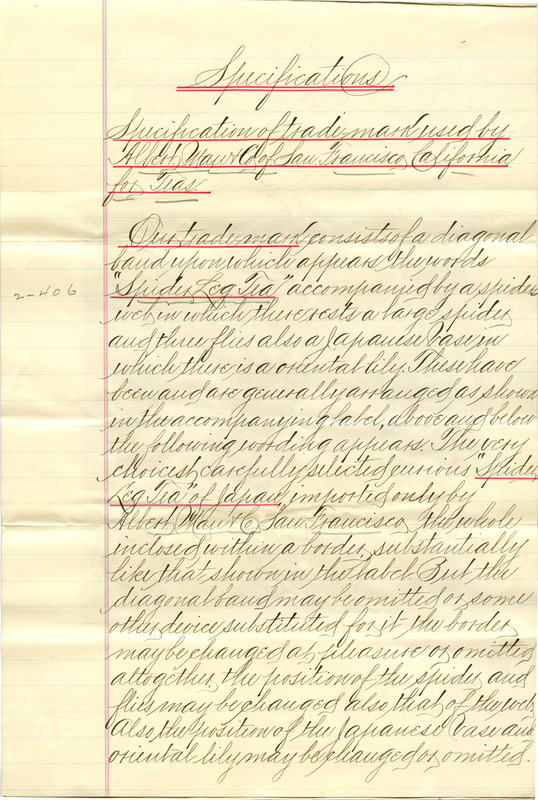 Specifications
Specification of trademark used by
Albert Mau & Co of San Francisco, California
for Teas.
Our trademark consists of a diagonal
band upon which appears the words
"Spider Leg Tea" accompanied by a spider
2-406
web in which there rests a large spider
and three flies also a Japanese Vase in
which there is a oriental lily. These have
been and are generally arranged as shown
in the accompanying label, above and below
the following wording appears. The very
choicest carefully selected curious "Spider
Leg Tea" of Japan, imported only by
Albert Mau & Co San Francisco, the whole
inclosed within a border, substantially
like that shown in the label. But the
diagonal band may be omitted or some
other device substituted for it, the border
may be changed at pleasure or omitted
altogether, the position of the spider and
flies may be changed also that of the web
Also the position of the Japanese Vase and
oriental lily may be changed or omitted.